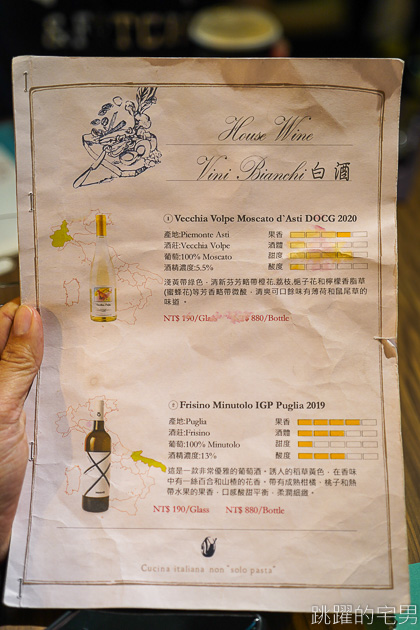 House Wine
Vini Bianchi 白酒
1 Vecchia Volpe Moscato d`Asti DOCG 2020
產地:Piemonte Asti
果香
酒莊:Vecchia Volpe
酒體
葡萄:100% Moscato
甜度
酒精濃度:5.5%
酸度
淺黃帶綠色，清新芬芳略帶橙花,荔枝,梔子花和檸檬香脂草
(蜜蜂花)等芳香略帶微酸，清爽可口餘味有薄荷和鼠尾草的
味道。
NT$ 190/Glass NT$ 880/Bottle
2 Frisino Minutolo IGP Puglia 2019
產地:Puglia
果香
酒莊:Frisino
酒體
葡萄:100% Minutolo
甜度
酒精濃度:13%
酸度
這是一款非常優雅的葡萄酒。誘人的稻草黃色，在香味
中有一絲百合和山楂的花香。帶有成熟柑橘，桃子和熱
帶水果的果香，口感酸甜平衡，柔潤細緻。
NT$ 190/Glass NT$ 880/Bottle
Cucina italiana non "solo pasta"
跳躍的宅男